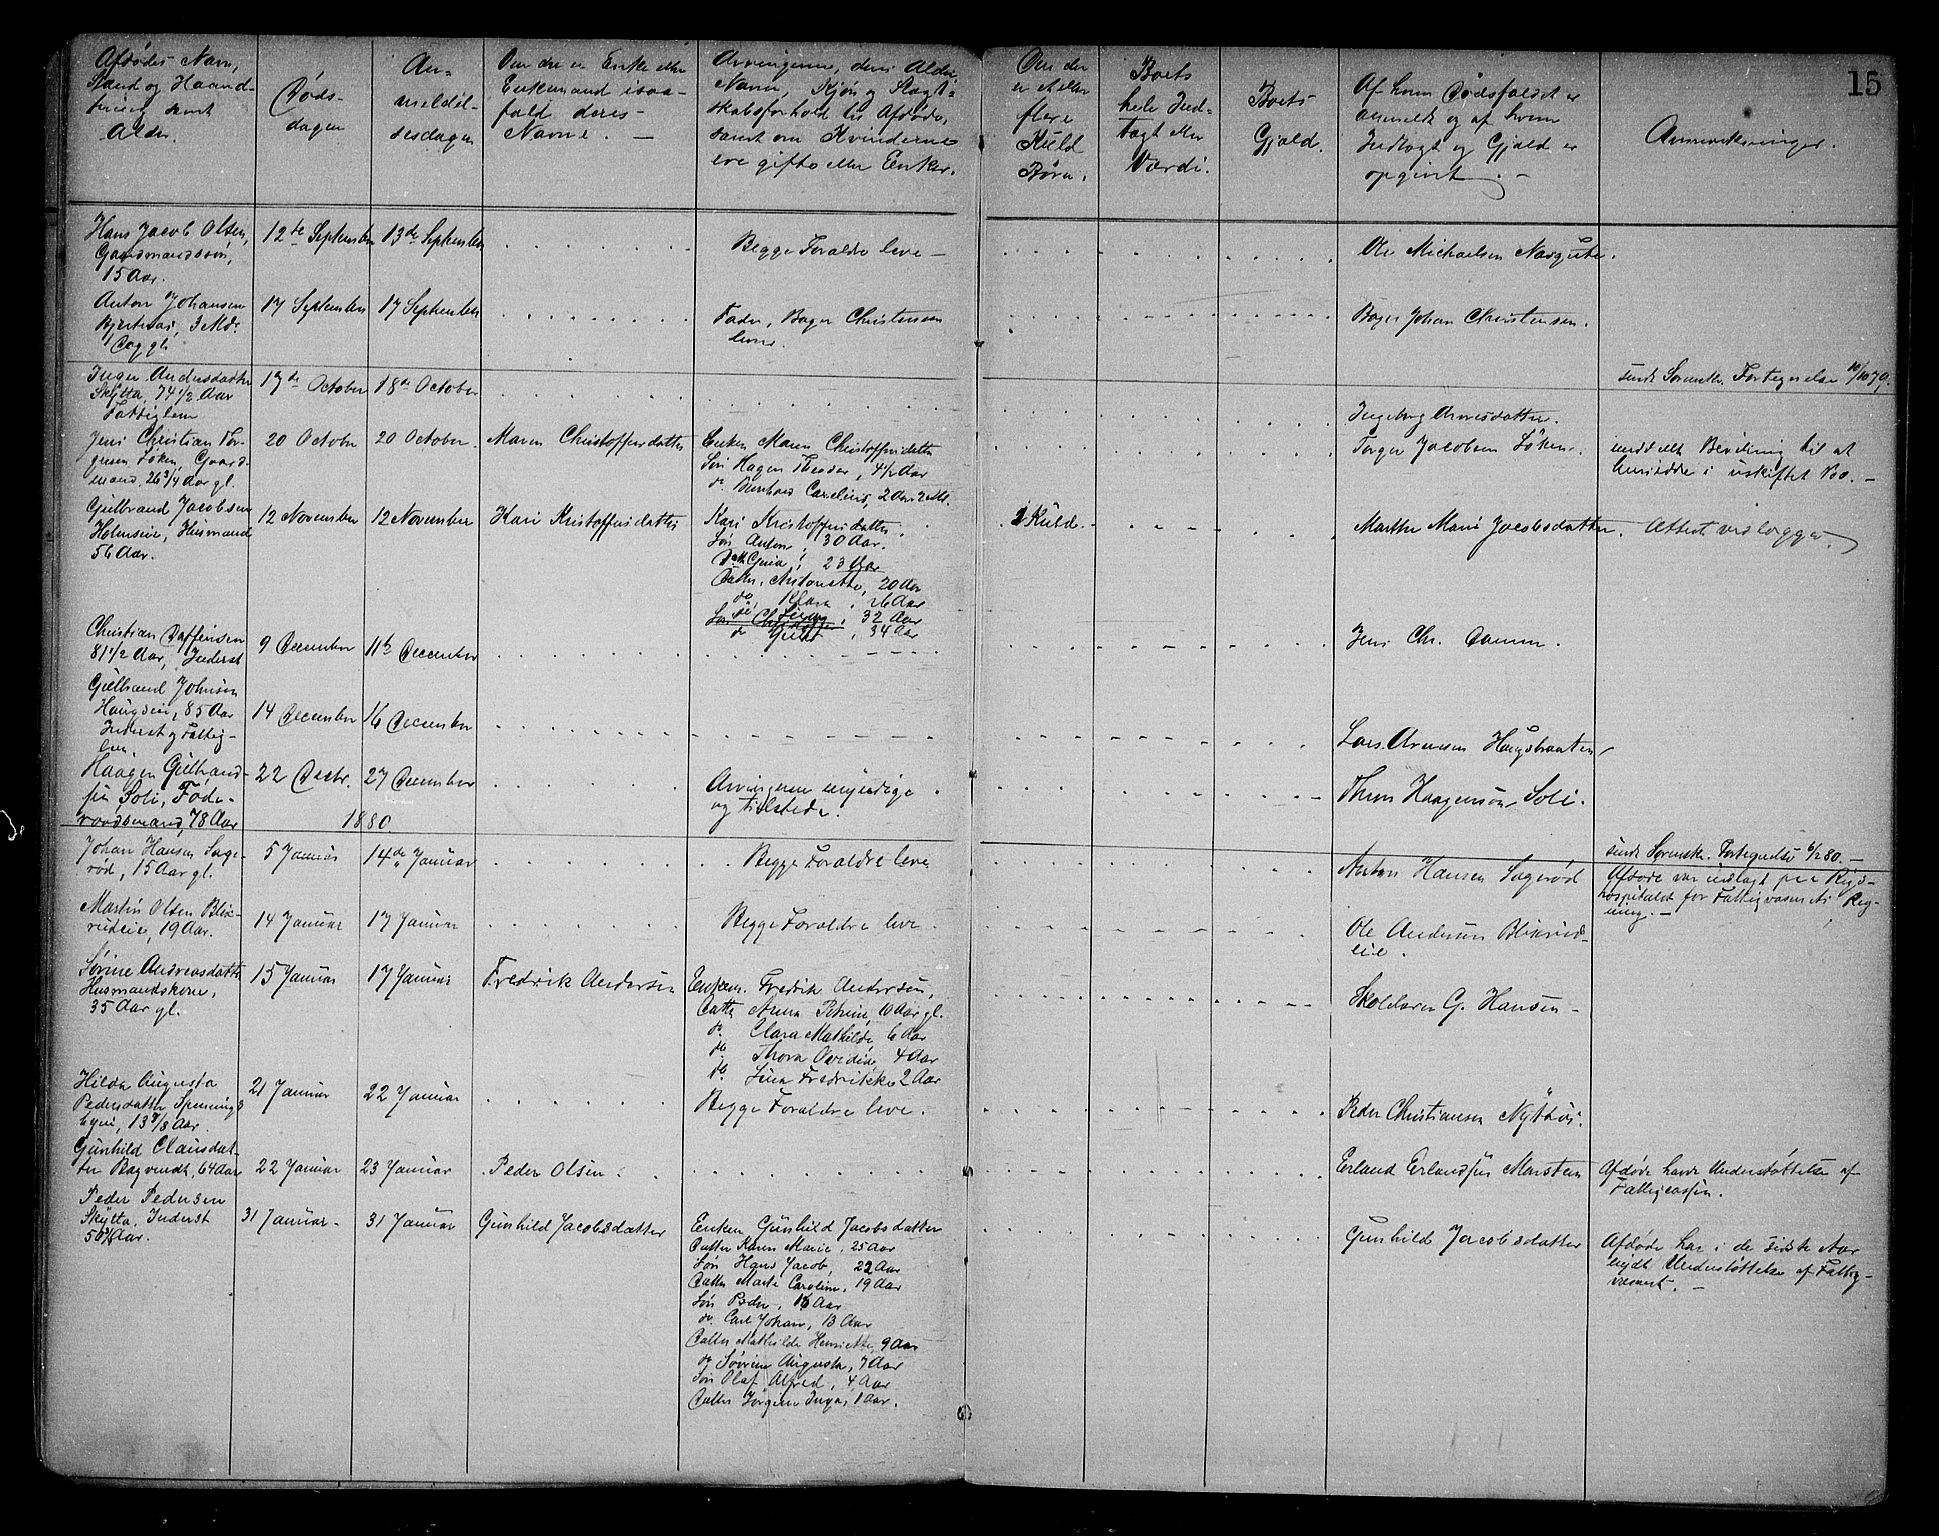 15
Afdødes Navn,
Stand og Haand-
tering samt
Alder.
Døds-
dagen
An-
meldel-
sesdagen
Om der er Enke eller
Enkemand isaa-
fald deres
Navne. —
Arvingerne, deres Alder,
Navn, Kjøn og Slægt-
skabsforhold til Afdøde,
samt om Kvinderne
ere gifte eller Enker.
Om der
er et eller
flere
Kuld
Børn.
Boets
hele Ind-
tægt eller
Værdi.
Boets
Gjæld.
Af hvem Dødsfaldet er
anmeldt og af hvem
Indtægt og Gjæld er
opgivet. —
Anmærkninger.
Hans Jacob Olsen,
Gaardmandssøn,
15 Aar.
12te September
13de September
Begge Forældre leve —
Ole Michaelsen
Anton Johansen
3 Mdr.
17 September
17 September
Fader, Bager Christensen
lever.
Bager Johan Christensen.
sendt Sorenskr. Fortegnelse 10/10 79.
Inger Andersdatter
Skytta, 74 1/2 Aar
Fattiglem
17de October
18de October
Ingeborg Arnesdatter.
Jens Christian Tor-
gersen Løken, Gaard-
mand, 26 3/4 Aar gl.
20 October
20 October
Maren Christoffersdatter
Enken Maren Christoffersdatter
Søn Hagen Theodor, 4 1/2 Aar
do. Bernhard Carelius, 2 Aar 2 Md.
Torger Jacobsen Løken.
meddelt Bevilling til at
hensidde i uskiftet Bo. —
Gulbrand Jacobsen
Holmseie, Husmand
56 Aar.
12 November
12 November
Kari Kristoffersdatter
Kari Kristoffersdatter.
Søn Anton, 30 Aar.
23 Aar
Datter, Antonette, 20 Aar
do Klara, 26 Aar
32 Aar
do 34 Aar
Kuld.
Marthe Marie Jacobsdatter.
Attest vedlægges.
Christian
81 1/2 Aar, Inderst
9 December
11te December
Jens Chr. Damm.
Gulbrand Johnsen
Haugseie, 85 Aar
Inderst og Fattig-
lem.
14 December
16 December
Lars Arnesen Haugsbraaten
Haagen Gulbrand-
sen Soli, Føde-
raadsmand, 78 Aar
22 Decbr.
27 December
Arvingerne myndige
og tilstede.
Thom Haagensen Soli.
1880
sendt Sorenskr. Fortegnelse 6/2 80. —
Johan Hansen Sage-
rød, 15 Aar gl.
5 Januar
14de Januar
Begge Forældre leve
Anton Hansen Sagerød
Afdøde var indlagt paa Rigs-
hospitalet for Fattigvæsenets Reg-
ning. —
Martin Olsen Blix-
rudeie, 19 Aar.
14 Januar
17 Januar
Begge Forældre leve.
Ole Andersen Blixrud-
eie.
Sørine Andreasdatter
Husmandskone,
35 Aar gl.
15 Januar
17 Januar
Fredrik Andersen
Enkem. Fredrik Andersen,
Datter Anna Petrine, 10 Aar gl.
do. Clara Mathilde, 6 Aar
do Thora Ovidia, 4 Aar
do. Lina Fredrikke 2 Aar
Skolelærer G. Hansen —
Hilda Augusta
Pedersdatter Spennings
13 7/8 Aar.
21 Januar
22 Januar
Begge Forældre leve.
Peder Christiansen Nythus.
Gunhild Clausdat-
ter Bagvendt, 64 Aar
22 Januar
23 Januar
Peder Olsen
Erland Erlandsen Marsteen
Afdøde havde Understøttelse af
Fattigcassen.
Peder Pedersen
Skytta, Inderst
50 1/2 Aar.
31 Januar
31 Januar
Gunhild Jacobsdatter
Enken Gunhild Jacobsdatter
Datter Karen Marie, 25 Aar
Søn Hans Jacob, 22 Aar
Datter Marte Caroline, 19 Aar
Søn Peder, 16 Aar
do. Carl Johan, 13 Aar
Datter Mathilde Henriette, 9 Aar
do Sørine Augusta, 7 Aar
Søn Olaf Alfred, 4 Aar
Datter Jørgine Inga, 1 Aar.
Gunhild Jacobsdatter
Afdøde har i de sidste Aar
nydt Understøttelse af Fattig-
væsenet. —